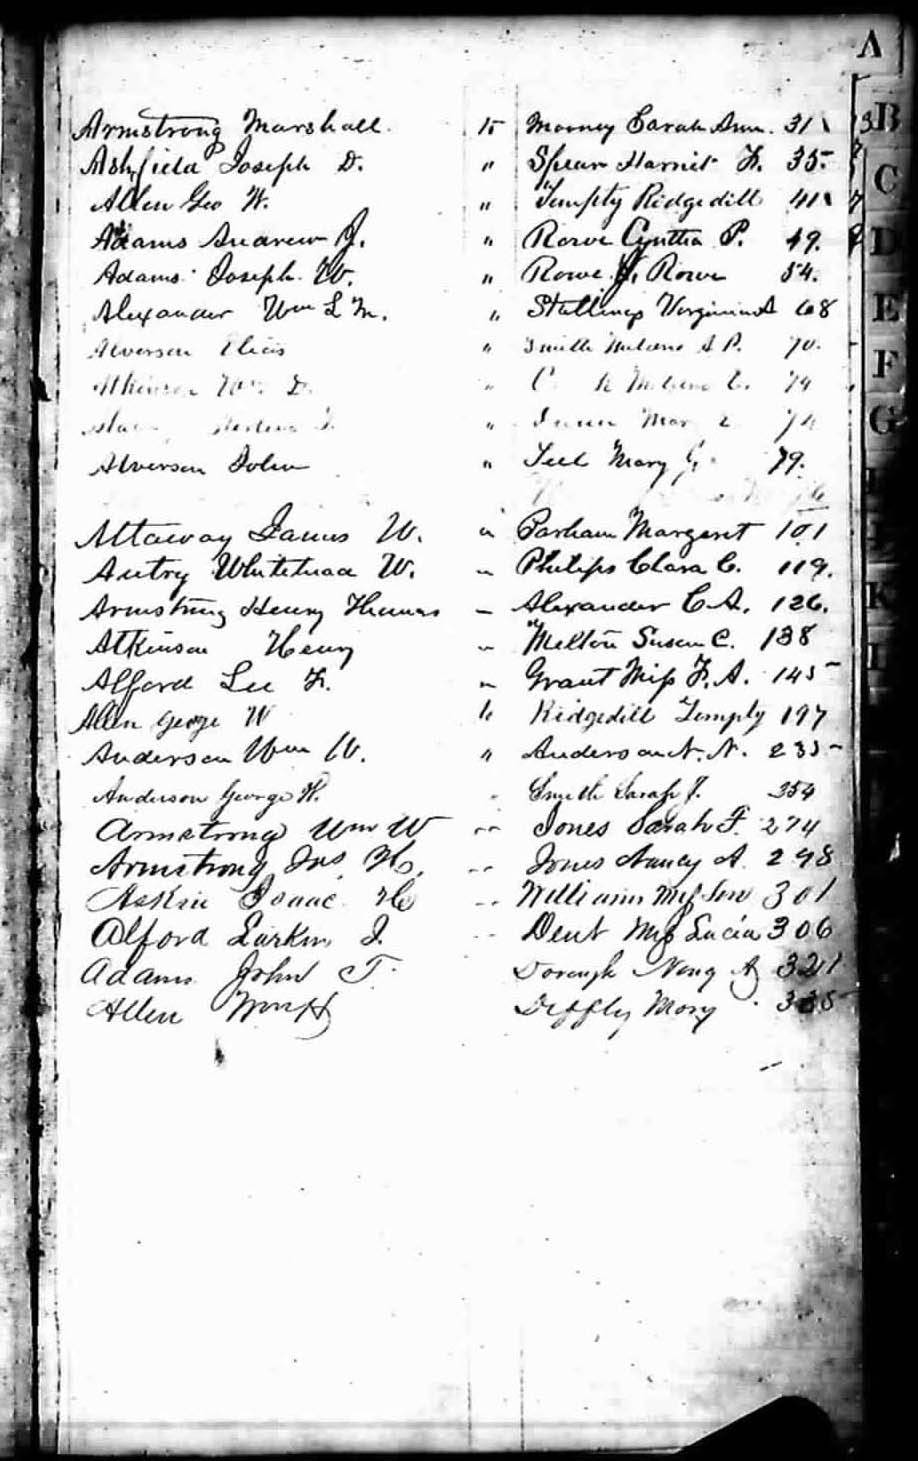 A
Armstrong Marshall to Mooney Sarah Ann. 31
Ashfield Joseph D. " Spear Harriet F. 35
Allen Geo W. " Tempty Ridgedill 41
Adams Andrew J. " Rowe Cyntha P. 49.
Adams Joseph W. " Rowe J. Rowe 54.
Alexander Wm L M. " Stallings Virginia A 68
Alverson Elias " Smith A P. 70.
Atkinson Wm D. " 74
" Mary 74
Alverson John " Teel Mary G. 79.
Attaway James W. " Parham Margaret 101
Autry Whitehead W. " Philips Clara C. 119.
Armstrong Henry Thomas " Alexander C A. 126.
Atkinson Henry " Melton Susan C. 138
Alford Lee F. " Grant Miss F. A. 145
Allen George W to Ridgedill Tempty 197
Anderson Wm W. " Anderson N. N. 235
Anderson George H. " Smith Sarah J. 254
Armstrong Wm W " Jones Sarah F. 274
Armstrong Jas H. " Jones Nancy A. 298
Askin Isaac H " Williams Miss 301
Alford Larkin J. " Dent Miss Lucia 306
Adams John T. Dorough A 321
Allen Wm H Deffly Mary 338
B
C
D
E
F
G
K